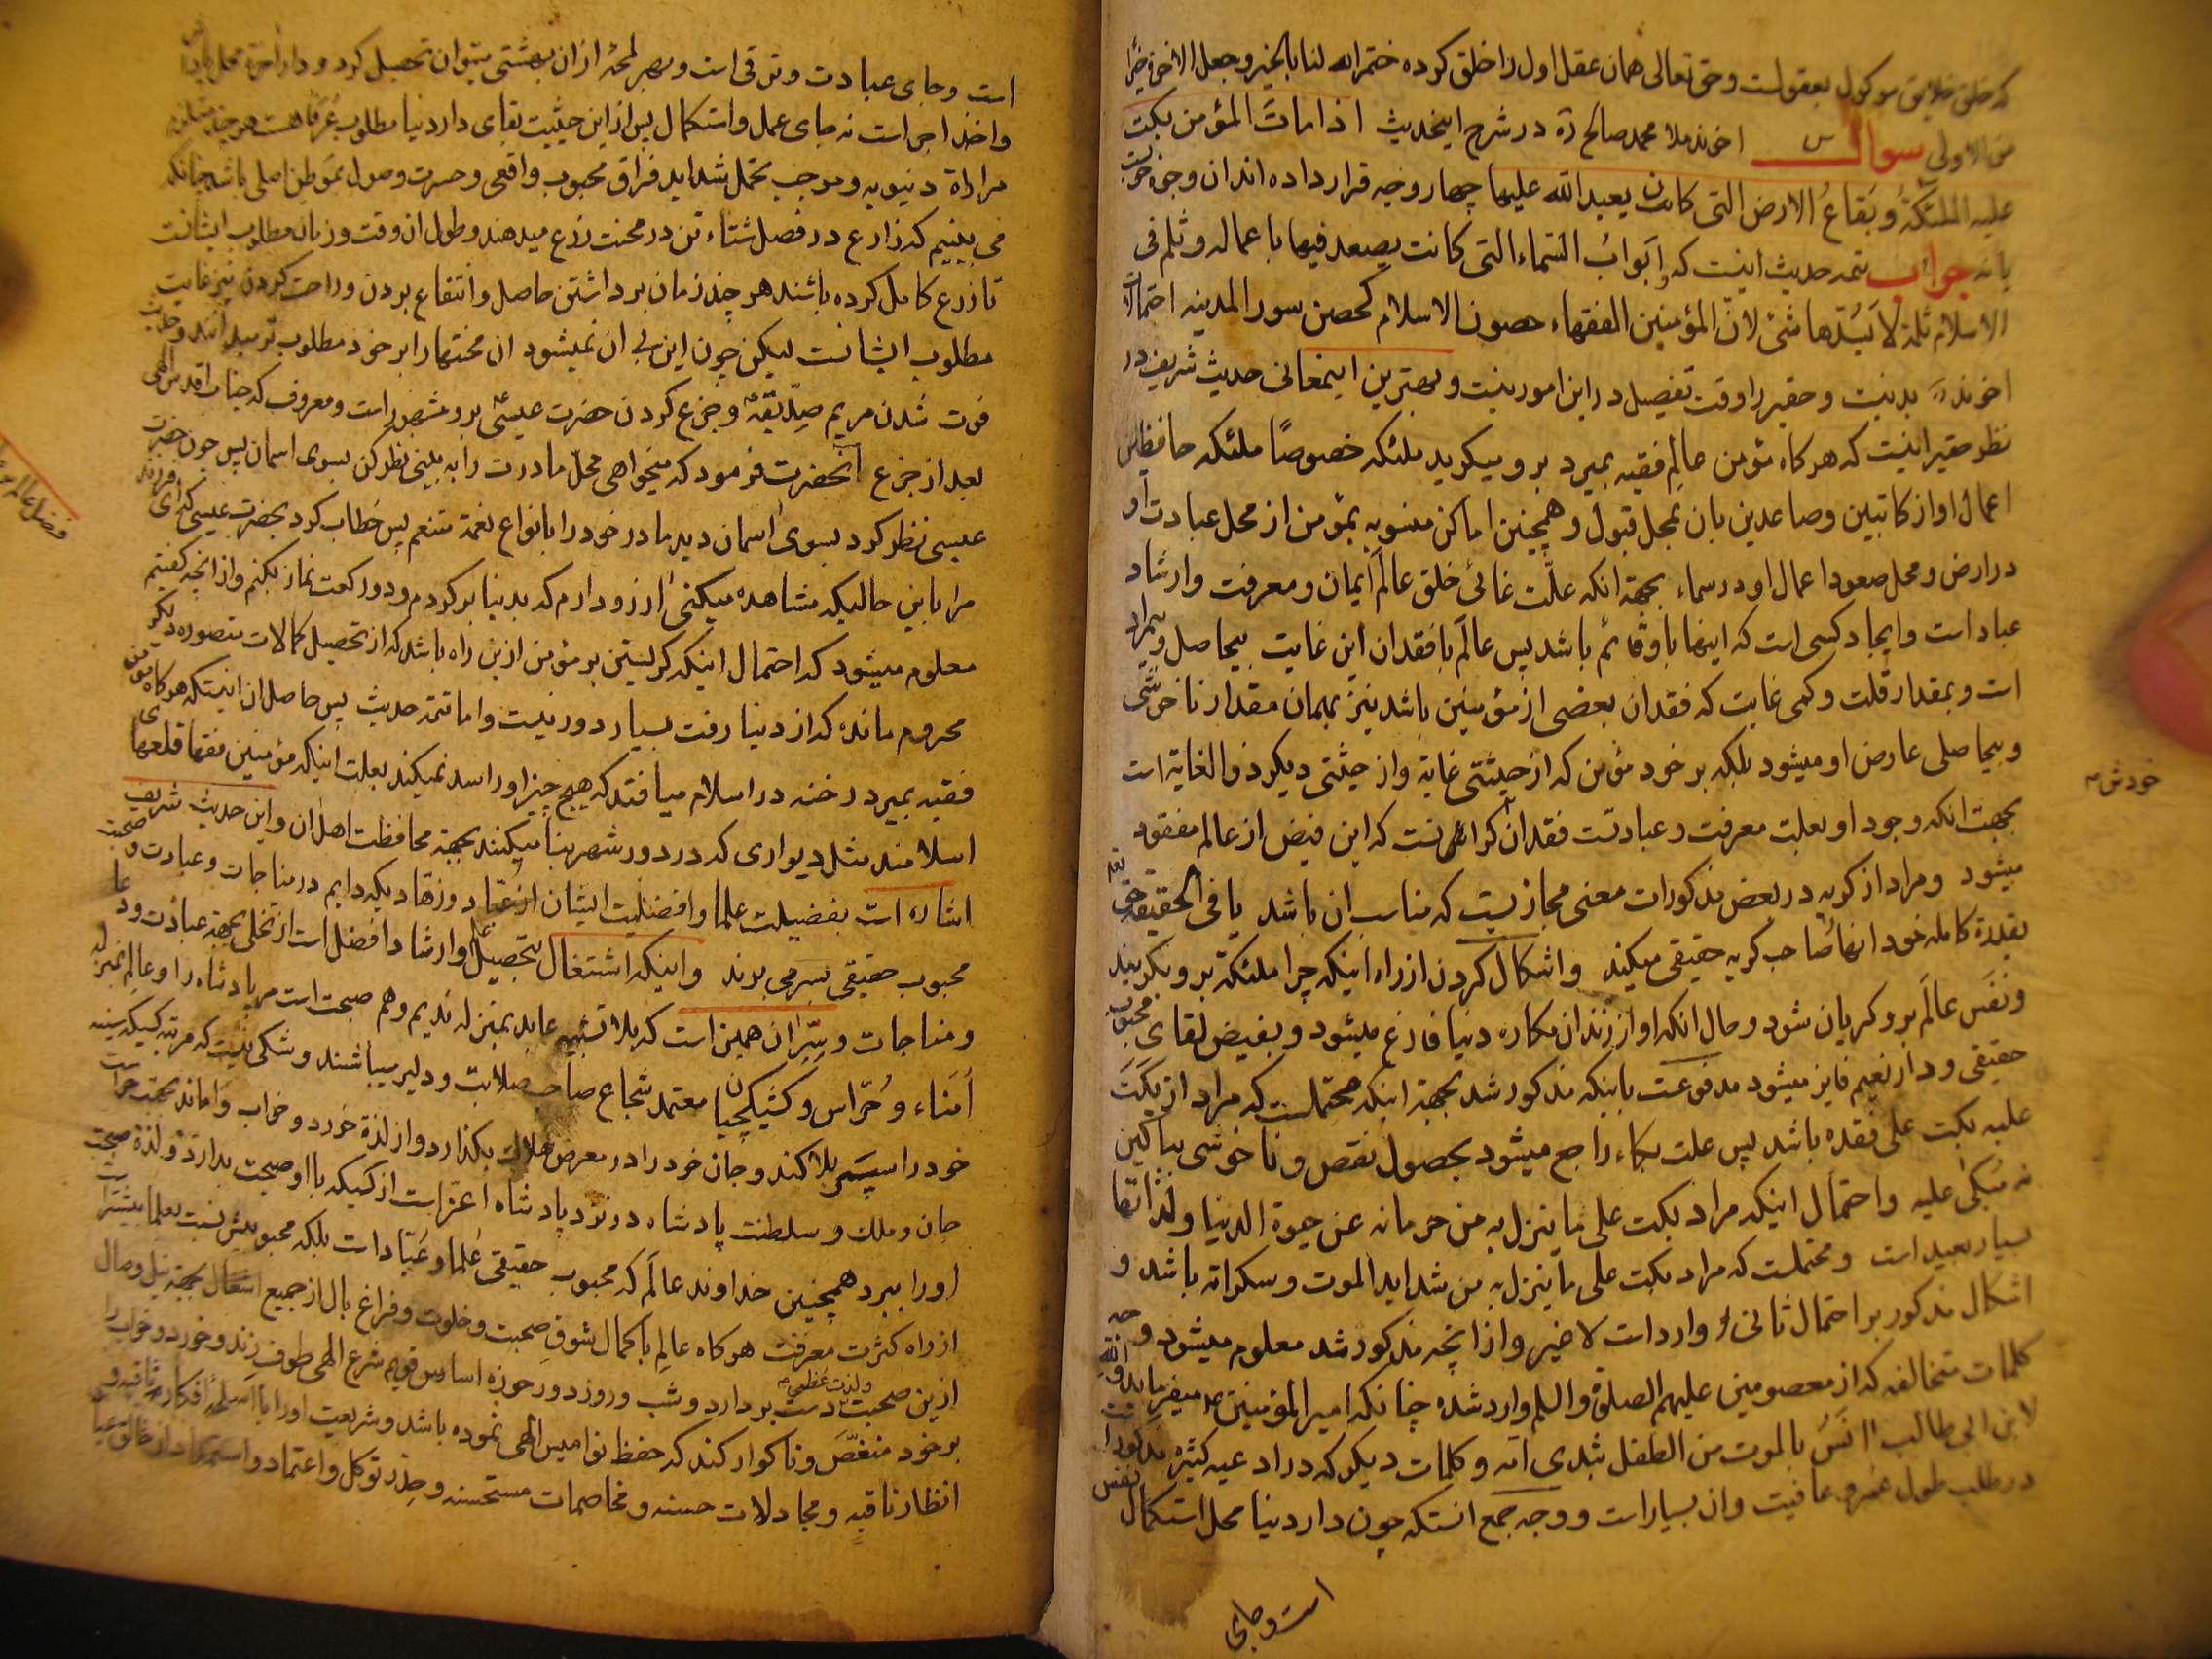 که خلق خلایق موکول بعقولست و حق تعالی همان عقل اول را خلق کرده ختم الله لنا بالخیر و جعل الاخرة خیرا
من الاولی سوال س اخوند ملا محمد صالح ره در شرح اینحدیث اذا مات المؤمن بکت
علیه الملئکة و بقاع الارض التی کان یعبد الله علیها چهار وجه قرار داده اند ان وجوه خوبست
یا نه جواب تتمه حدیث اینست که و ابواب السماء التی کانت یصعد فیها باعماله و ثلم فی
الاسلام ثلمة لا یسدها شئ لان المؤمنین الفقهاء حصون الاسلام کحصن سور المدینه احتمالات
اخوند ره بد نیست و حقیر را وقت تفصیل در این امور نیست و بهترین اینمعانی حدیث شریف در
نظر حقیر اینست که هرکاه مؤمن عالم فقیه بمیرد برو میکرید ملئکه خصوصا ملئکه حافظین
اعمال او از کاتبین و صاعدین بان بمحل قبول و همچنین اماکن منسوبه بمؤمن از محل عبادت او
در ارض و محل صعود اعمال او در سماء بجهة انکه علّت غائی خلق عالم ایمان و معرفت و ارشاد
عباد است و ایجاد کسی است که اینها باو قائم باشد پس عالم با فقدان این غایت بیحاصل و بیمراد
است و بمقدار قلت و کمی غایت که فقدان بعضی از مؤمنین باشد نیز بهمان مقدار ناخوشی
و بیحاصلی عارض او میشود بلکه بر خود مؤمن که از حیثتی غایة و از حیثتی دیکر ذو الغایة است
خودش
بجهت انکه وجود او بعلت معرفت و عبادتست فقدان که این فیض از عالم مفقود
میشود و مراد از کریه در بعض مذکورات معنی مجازیست که مناسب ان باشد یا فی الحقیقه
بقدرة کامله خود انها صاحب کریه حقیقی میکند و اشکال کردن از راه اینکه چرا ملئکه برو بکریند
و نفس عالم برو کریان شود و حال انکه او از زندان مکاره دنیا فارغ میشود و بفیض لقای محبوب
حقیقی و دار نعیم فایز میشود مدفوعست باینکه مذکور شد بجهة اینکه محتملست که مراد از بکت
علیه بکت علی فقده باشد پس علت بکاء راجع میشود بحصول نقص و ناخوشی بباکین
نه مبکی علیه و احتمال اینکه مراد بکت علی ما ینزل به من حرمانه عن حیوة الدنیا و لذاتها
بسیار بعید است و محتملست که مراد بکت علی ما ینزل به من شداید الموت و سکراته باشد و
اشکال مذکور بر احتمال ثانی وارد است لا غیر و از انچه مذکور شد معلوم میشود وجه
کلمات متخالفه که از معصومین علیهم الصلوة و السلم وارد شده چنانکه امیر المؤمنین ع میفرماید و الله
لابن ابی طالب انس بالموت من الطفل بثدی امه و کلمات دیکر که در ادعیه کثیره مذکور است
در طلب طول عمر و عافیت و ان بسیار است و وجه جمع انستکه چون دار دنیا محل استکمال نفس
است و جای
است و جای عبادت و ترقی است و بهر لمحهٔ از ان بهشتی میتوان تحصیل کرد و دار اخرة محل
و اخذ اجر است نه جای عمل و استکمال پس از این حیثیت بقای دار دنیا مطلوب عرفا هست هر چند مستلزم
مراراة دنیویه و موجب تحمل شداید فراق محبوب واقعی و حسرت وصول بموطن اصلی باشد چنانکه
می بینیم که زارع در فصل شتاء تن در محنت زرع میدهند و طول ان وقت و زمان مطلوب ایشانست
تا زرع کامل کرده باشند هر چند زمان برداشتن حاصل و انتفاع بردن و راحت کردن نیز غایت
مطلوب ایشانست لیکن چون این بی ان نمیشود ان محنتها را بر خود مطلوب تر میدانند و حدیث
فوت شدن مریم صدّیقه و جزع کردن حضرت عیسی برو مشهور است و معروف که جناب اقدس الهی
بعد از جزع انحضرت فرمود که میخواهی محل مادرت را به بینی نظر کن بسوی اسمان پس چون حضرت
عیسی نظر کرد بسوی اسمان دید مادر خود را بانواع نعمة متنعم پس خطاب کرد بحضرت عیسی که ای فرزند
مرا باین حالیکه مشاهده میکنی ارزو دارم که بدنیا برکردم و دو رکعت نماز بکنم و از انچه کفتیم
معلوم میشود که احتمال اینکه کریستن بر مؤمن ازین راه باشد که از تحصیل کمالات متصوره دیکر
محروم مانده که از دنیا رفت بسیار دور نیست و اما تتمه حدیث پس حاصل ان اینستکه هرکاه مؤمن
فقیه بمیرد رخنه در اسلام میافتد که هیچ چیز او را سد نمیکند بعلت اینکه مؤمنین فقها قلعهای
اسلامند مثل دیواری که در دور شهر بنا میکنند بجهة محافظت اهل ان و این حدیث شریف
اشاره است بفضیلت علما و افضلیت ایشان از عبّاد و زهاد یکه دایم در مناجات و عبادت و صحبت
محبوب حقیقی بسر می برند و اینکه اشتغال بتحصیل علم و ارشاد افضل است از تخلی بجهة عبادت و دعا
و مناجات و سرّ ان همین است که بلا تشبیه عابد بمنزله ندیم و هم صحبت است مر پادشاه را و عالم بمنزله
اُمناء و حُرّاس و کشیکچیان معتمد شجاع صاحب صلابت و دلیر میباشند و شکی نیست که مرتبه کسیکه سینه
خود را سپر بلا کند و جان خود را در معرض هلاکت بکذارد و از لذة خورد و خواب واماند بجهت حراست
جان و ملک و سلطنت پادشاه در نزد پادشاه اعز است از کسیکه با او صحبت بدارد و لذة صحبت
او را ببرد همچنین خداوند عالم که محبوب حقیقی علما و عبّاد است بلکه محبوبیتش نسبت بعلما بیشتر است
از راه کثرت معرفت هرکاه عالم با کمال شوق صحبت و خلوت و فراغ بال از جمیع اشغال بجهة نیل وصال
ازین صحبت و لذت عظمی دست بردارد و شب و روز در دور حوزه اساس قویم شرع الهی طوف زند و خورد و خواب را
بر خود منغّص و ناکوار کند که حفظ نوامیس الهی نموده باشد و شریعت او را با اسلحه افکار ثاقبه و
انظار ثاقبه و مجادلات حسنه و مخاصمات مستحسنه و حذر توکل و اعتماد و استمداد از خالق عباد